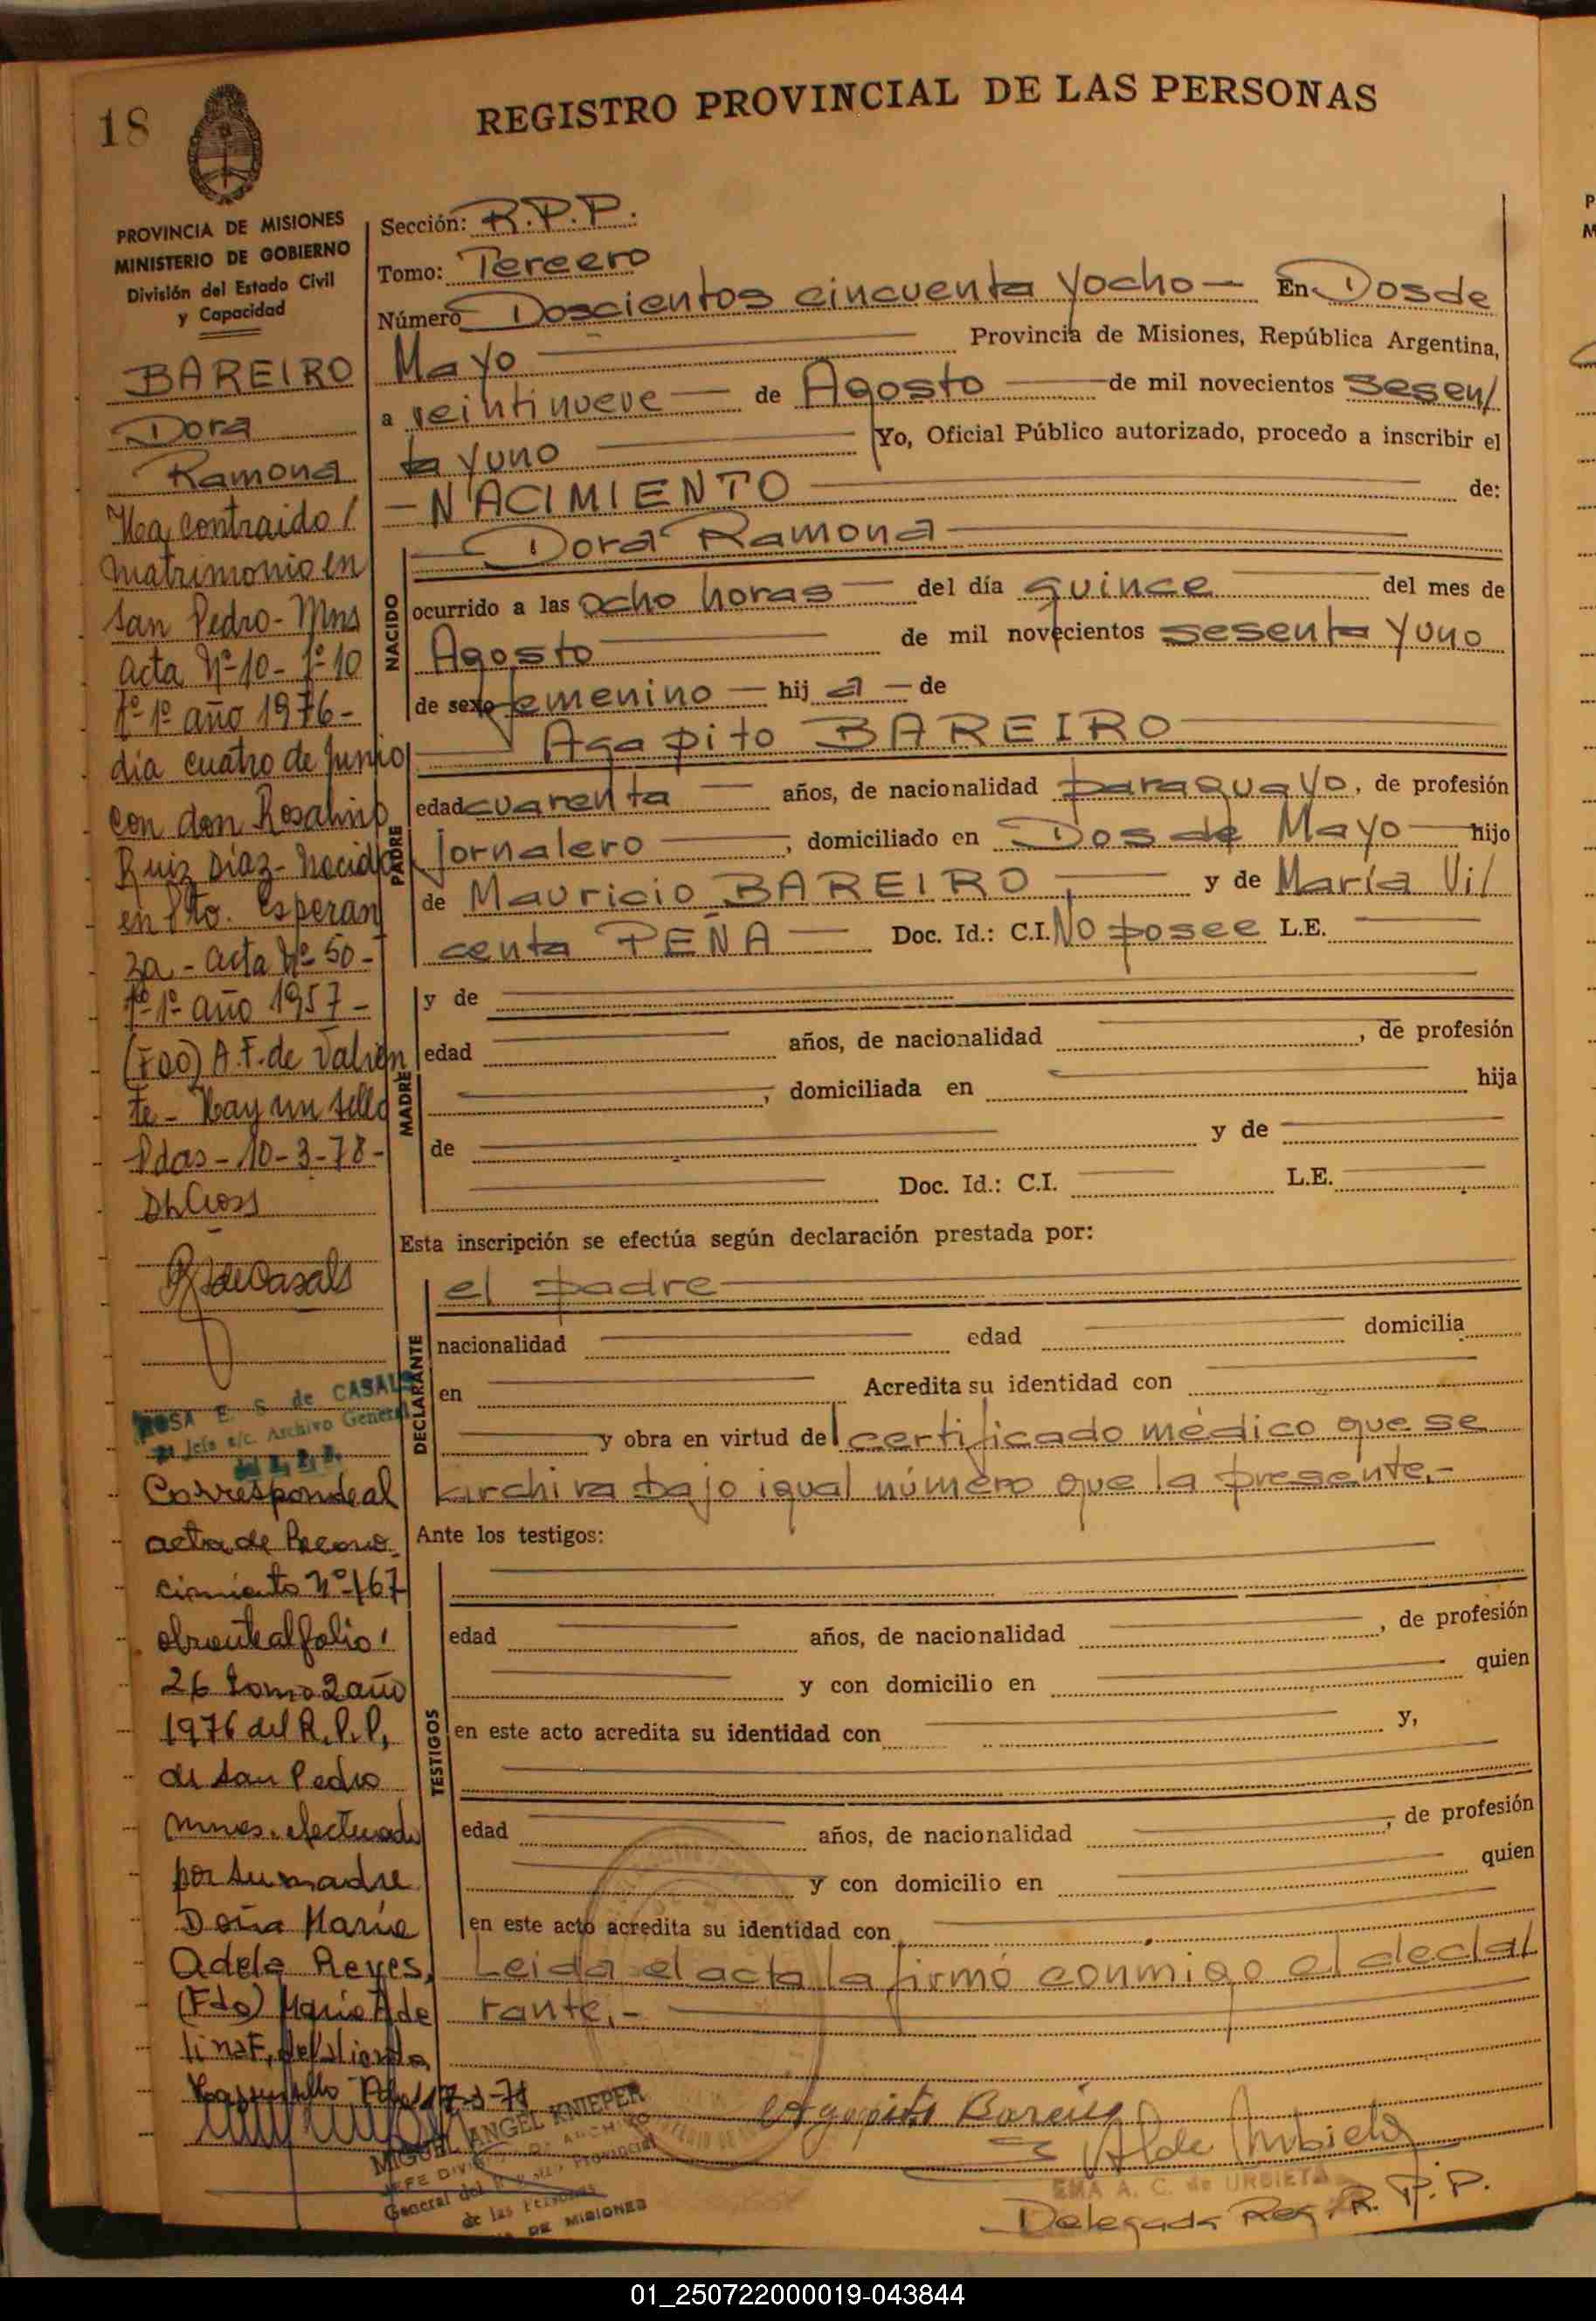 18
REGISTRO PROVINCIAL DE LAS PERSONAS
PROVINCIA DE MISIONES
MINISTERIO DE GOBIERNO
División del Estado Civil
y Capacidad
BAREIRO
Dora
Ramona
Ha contraido /
matrimonio en
San Pedro - Mnes
acta Nº 10 - Fº 10
Tº 1º año 1976 -
día cuatro de Junio
con don Rosalino
Ruiz Díaz - nacido
en Pto. Esperan
za - acta Nº 50 -
Tº 1º año 1957 -
(FDO) A. F. de Valien
te - Hay un sello
Pdas - 10 - 3 - 78 -
ROSA E. S. de CASALS
Jefe a/c. Archivo General
Corresponde al
acta de Recono
cimiento Nº 167
obrante al folio
26 tomo 2 año
1976 del R.P.P.
de San Pedro
Mnes. efectuado
por su madre
Doña María
Adela Reyes,
(Fdo) María Ade
Hay un sello
MIGUEL ANGEL KNIEPER
JEFE DIVISION DE ARCHIVO
General del Provincial
de las Personas
DE MISIONES
Sección: R.P.P.
Tomo: Tercero
Número Doscientos cincuenta y ocho — En Dos de
Mayo — Provincia de Misiones, República Argentina,
a veintinueve — de Agosto — de mil novecientos sesen/
ta y uno — Yo, Oficial Público autorizado, procedo a inscribir el
- NACIMIENTO — de:
Dora Ramona
NACIDO
ocurrido a las ocho horas — del día quince — del mes de
Agosto — de mil novecientos sesenta y uno
de sexo femenino — hij a — de
Agapito BAREIRO
PADRE
edad cuarenta — años, de nacionalidad paraguayo, de profesión
jornalero —, domiciliado en Dos de Mayo — hijo
de Mauricio BAREIRO — y de María Vi/
centa PEÑA — Doc. Id.: C.I. No posee L.E.
MADRE
y de
edad años, de nacionalidad , de profesión
, domiciliada en hija
de y de
Doc. Id.: C.I. L.E.
Esta inscripción se efectúa según declaración prestada por:
DECLARANTE
el padre
nacionalidad edad domicilia
en Acredita su identidad con
y obra en virtud del certificado médico que se
archiva bajo igual número que la presente.-
Ante los testigos:
TESTIGOS
edad años, de nacionalidad , de profesión
y con domicilio en quien
en este acto acredita su identidad con y,
edad años, de nacionalidad , de profesión
y con domicilio en quien
en este acto acredita su identidad con
Leida el acta la firmó conmigo el decla/
rante.-
Agapito Bareiro
EMA A. C. de URBIETA
Delegada Reg. R.P.P.
01_250722000019-043844